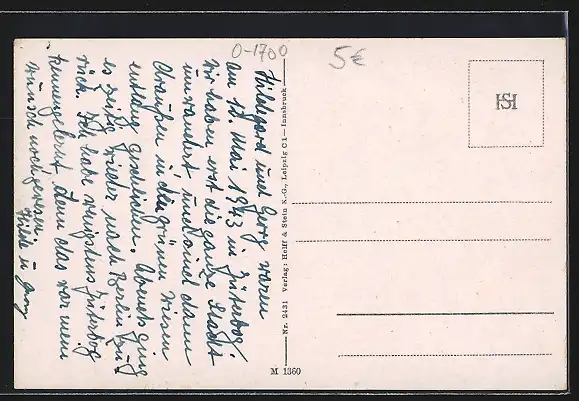 O-1700
5€
HSH
Hildegard und Georg waren
am 12. Mai 1943 in Jüterbog.
Wir haben erst die ganze Stadt
umwandert und sind dann
draußen in den grünen Wiesen
entlang geschlichen. Abends ging
es bitte wieder nach Berlin zu-
rück. Ich habe wenigstens Jüterbog
kennengelernt, denn das war mein
Wunsch noch gewesen
Hilde u. Georg
Nr. 2431 Verlag: Hoiff & Stein K.-G., Leipzig C1—Innsbruck
M 1360